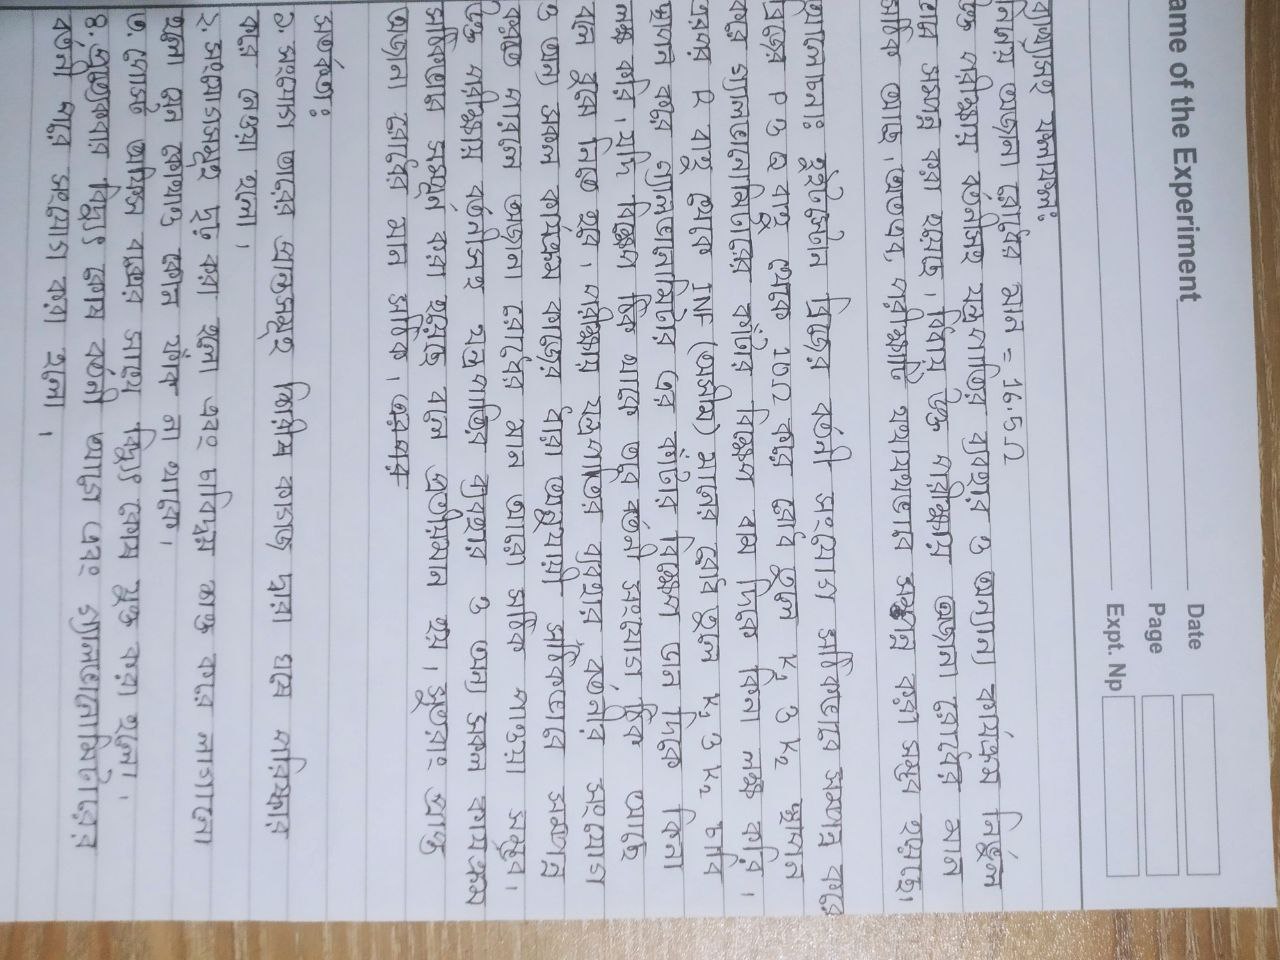 ame of the Experiment
Date
Page
Expt. Np
ব্যাখ্যাসহ ফলাফল:
নির্ণেয় অজানা রোধের মান = 16.5Ω
উক্ত পরীক্ষায় বর্তনীসহ যন্ত্রপাতির ব্যবহার ও অন্যান্য কার্যক্রম নির্ভুল
ভাবে সম্পন্ন করা হয়েছে। বিধায় উক্ত পরীক্ষায় অজানা রোধের মান
সঠিক আছে। অতএব, পরীক্ষাটি যথাযথভাবে সম্পন্ন করা সম্ভব হয়েছে।
আলোচনা: হুইটস্টোন ব্রিজের বর্তনী সংযোগ সঠিকভাবে সম্পন্ন করে
ব্রিজের P ও Q বাহু থেকে 10Ω করে রোধ তুলে K₁ ও K₂ স্থাপন
করে গ্যালভানোমিটারের কাঁটার বিক্ষেপ বাম দিকে কিনা লক্ষ করি।
এরপর R বাহু থেকে INF (অসীম) মানের রোধ তুলে K₁ ও K₂ চাবি
স্থাপন করে গ্যালভানোমিটার এর কাঁটার বিক্ষেপ ডান দিকে কিনা
লক্ষ করি। যদি বিক্ষেপ ঠিক থাকে তবে বর্তনী সংযোগ ঠিক আছে
বলে ধরে নিতে হবে। পরীক্ষায় যন্ত্রপাতির ব্যবহার, বর্তনীর সংযোগ
ও অন্য সকল কার্যক্রম কাজের ধারা অনুযায়ী সঠিকভাবে সম্পন্ন
করতে পারলে অজানা রোধের মান আরো সঠিক পাওয়া সম্ভব।
উক্ত পরীক্ষায় বর্তনীসহ যন্ত্রপাতির ব্যবহার ও অন্য সকল কার্যক্রম
সঠিকভাবে সম্পূর্ন করা হয়েছে বলে প্রতীয়মান হয়। সুতরাং প্রাপ্ত
অজানা রোধের মান সঠিক।
সতর্কতা:
১. সংযোগ তারের প্রান্তসমূহ শিরীষ কাগজ দ্বারা ঘষে পরিষ্কার
করে নেওয়া হলো।
২. সংযোগসমূহ দৃঢ় করা হলো এবং চাবিসমূহ কাজ করে লাগানো
হলো যেন কোথাও কোন ফাঁক না থাকে।
৩. শেষে বিদ্যুৎ কোষ যুক্ত করা হলো।
৪. প্রত্যেকবার বিদ্যুৎ কোষ বর্তনী আগে এবং গ্যালভানোমিটারের
বর্তনী পরে সংযোগ করা হলো।